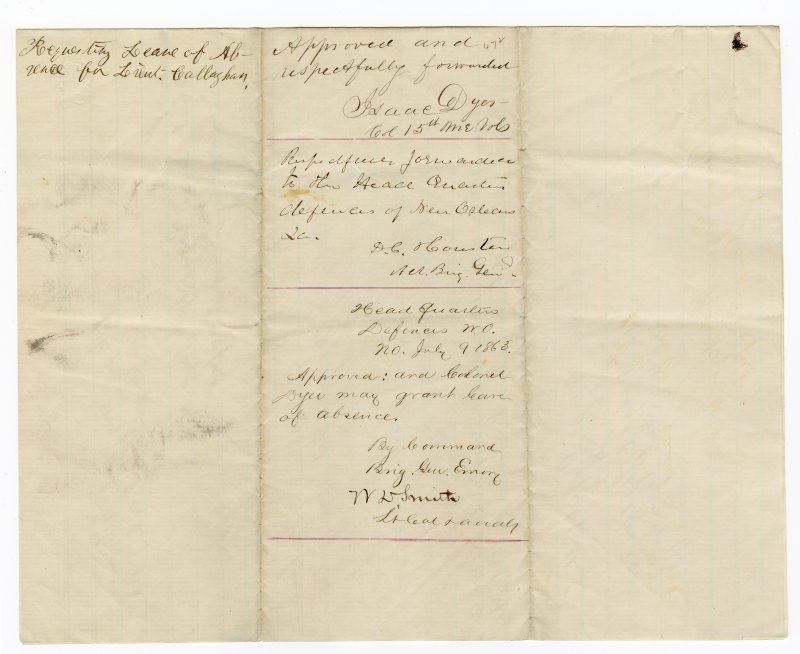 Requesting Leave of Ab-
sence for Lieut. Callaghan.
Approved and
respectfully forwarded
Isaac Dyer
Col 15th Me Vols
Respectfully forwarded
to the Head Quarters
defences of New Orleans
La.
D.C. Houston
Act. Brig. Genl.
Head Quarters
Defences N.O.
N.O. July 9 1863.
Approved: and Colonel
Dyer may grant leave
of absence.
By Command
Brig. Gen. Emory
W D Smith
Lt Col